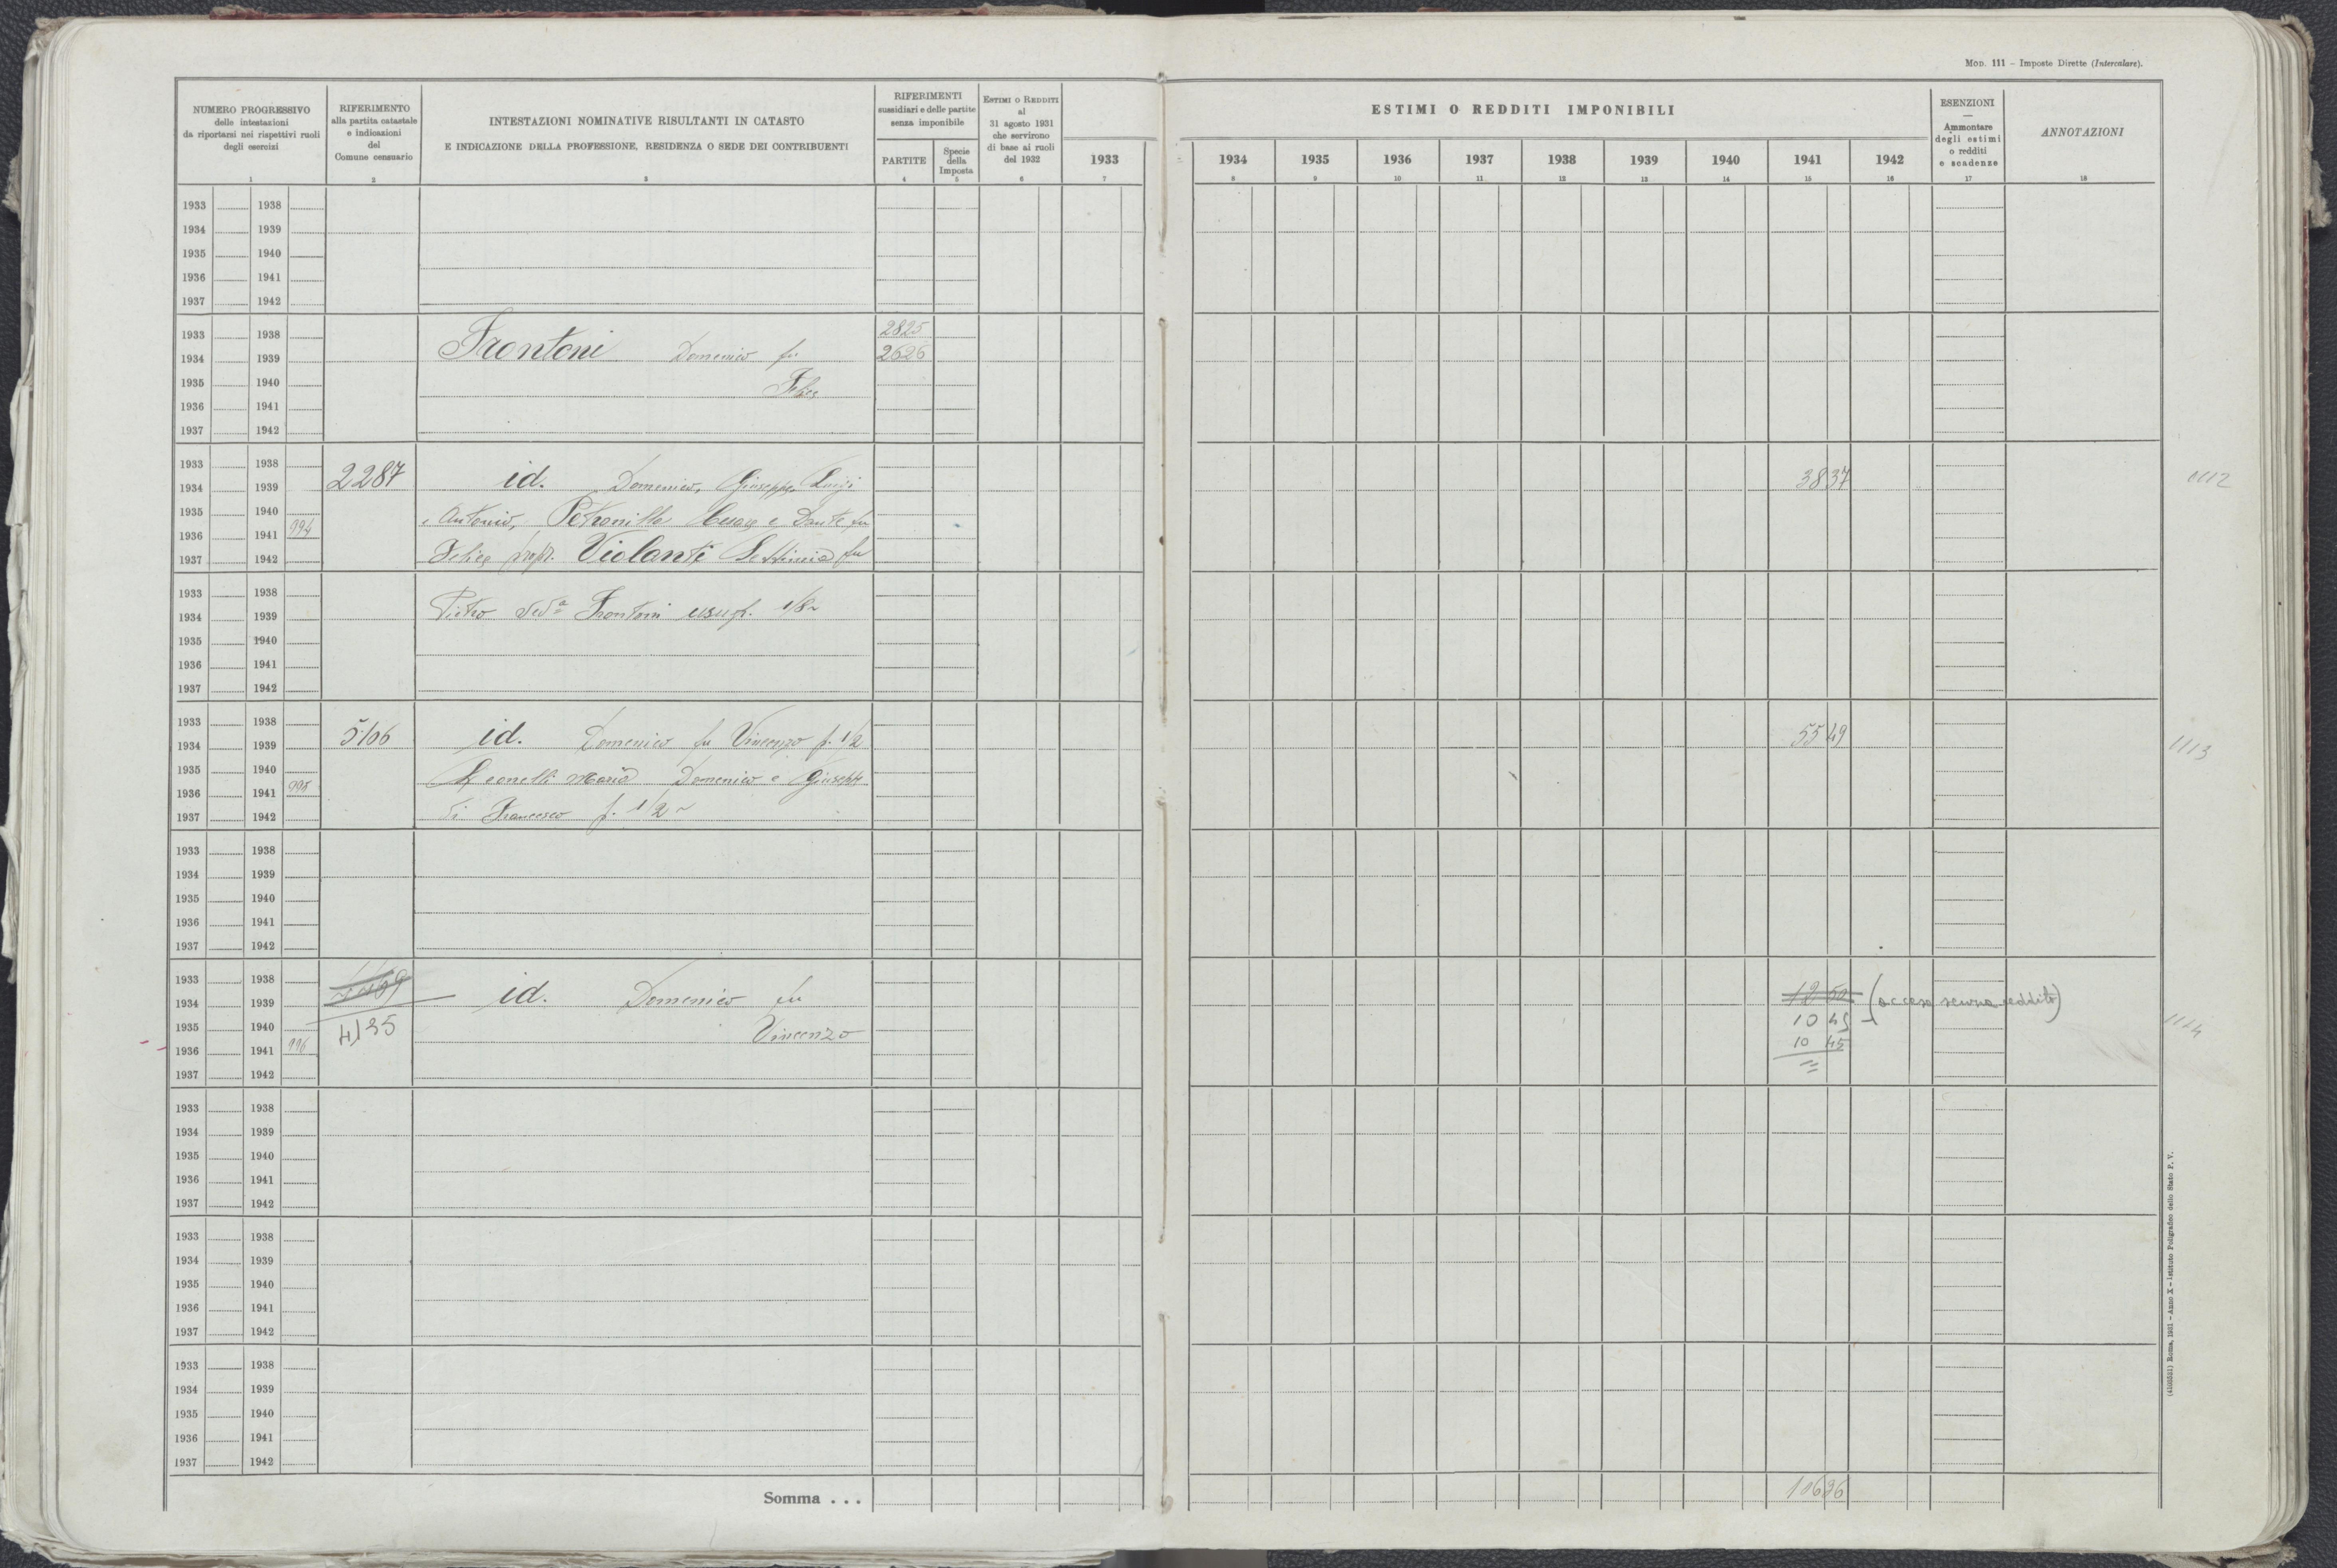 MOD. 111 – Imposte Dirette (Intercalare).
NUMERO PROGRESSIVO
delle intestazioni
da riportarsi nei rispettivi ruoli
degli esercizi
1
RIFERIMENTO
alla partita catastale
e indicazioni
del
Comune censuario
2
INTESTAZIONI NOMINATIVE RISULTANTI IN CATASTO
E INDICAZIONE DELLA PROFESSIONE, RESIDENZA O SEDE DEI CONTRIBUENTI
3
RIFERIMENTI
sussidiari e delle partite
senza imponibile
PARTITE
4
Specie
della
Imposta
5
ESTIMI O REDDITI
al
31 agosto 1931
che servirono
di base ai ruoli
del 1932
6
1933
7
ESTIMI O REDDITI IMPONIBILI
1934 1935 1936 1937 1938 1939 1940 1941 1942
8 9 10 11 12 13 14 15 16
ESENZIONI
—
Ammontare
degli estimi
o redditi
e scadenze
17
ANNOTAZIONI
18
1933 1938
1934 1939
1935 1940
1936 1941
1937 1942
1933 1938 2825
1934 1939 Frontoni Domenico fu 2626
1935 1940 Felice
1936 1941
1937 1942
1933 1938
1934 1939 2287 id. Domenico, Giuseppe, Luigi 3837 1112
1935 1940 e Antonio, Petronilla Cesare e Dante fu
1936 1941 994
1937 1942 Felice propr. Violanti Settimia fu
1933 1938
1934 1939 Pietro ved<sup>a</sup> Frontoni usuf. 1/8
1935 1940
1936 1941
1937 1942
1933 1938
1934 1939 5106 id. Domenico fu Vincenzo p. 1/2 5549 1113
1935 1940 Leonelli Maria Domenico e Giuseppe
1936 1941 995
1937 1942 di Francesco p. 1/2
1933 1938
1934 1939
1935 1940
1936 1941
1937 1942
1933 1938
1934 1939 id. Domenico fu 12 50 (acceso senza reddito)
1935 1940 4135 Vincenzo 10 45 1114
1936 1941 996 10 45
1937 1942 =
1933 1938
1934 1939
1935 1940
1936 1941
1937 1942
1933 1938
1934 1939
1935 1940
1936 1941
1937 1942
1933 1938
1934 1939
1935 1940
1936 1941
1937 1942
Somma . . . 10636
(4103531) Roma, 1931 – Anno X – Istituto Poligrafico dello Stato P. V.